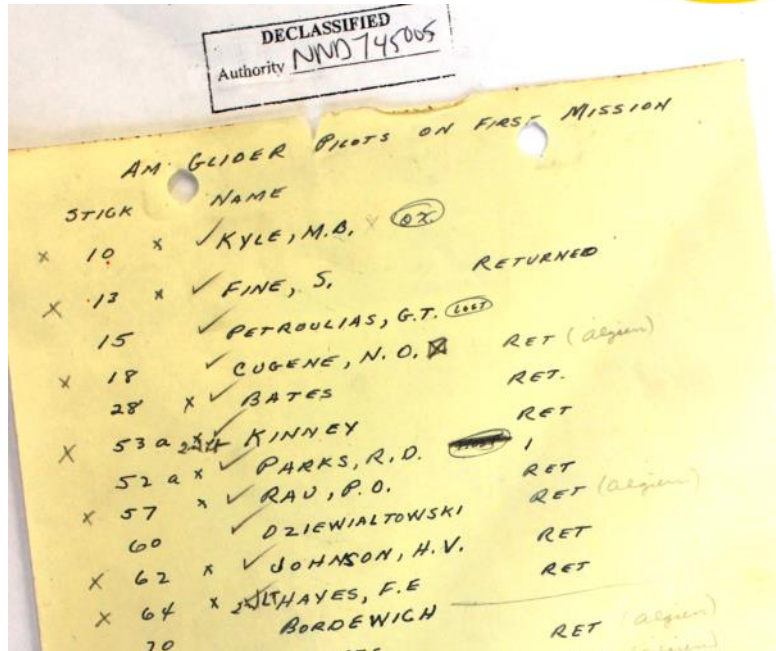 DECLASSIFIED
Authority NND 745005
AM. GLIDER PILOTS ON FIRST MISSION
STICK NAME
x 10 x ✓ KYLE, M.B.
x 13 x ✓ FINE, S. RETURNED
15 ✓ PETROULIAS, G.T. LOST
x 18 ✓ CUGENE, N.O. RET (algien)
28 x ✓ BATES RET.
x 53a x ✓ KINNEY RET
52a x ✓ PARKS, R.D. 1
x 57 x ✓ RAU, P.O. RET
60 ✓ DZIEWIALTOWSKI RET (algien)
x 62 x ✓ JOHNSON, H.V. RET
x 64 x HAYES, F.E RET
70 BORDEWICH
RET (algien)